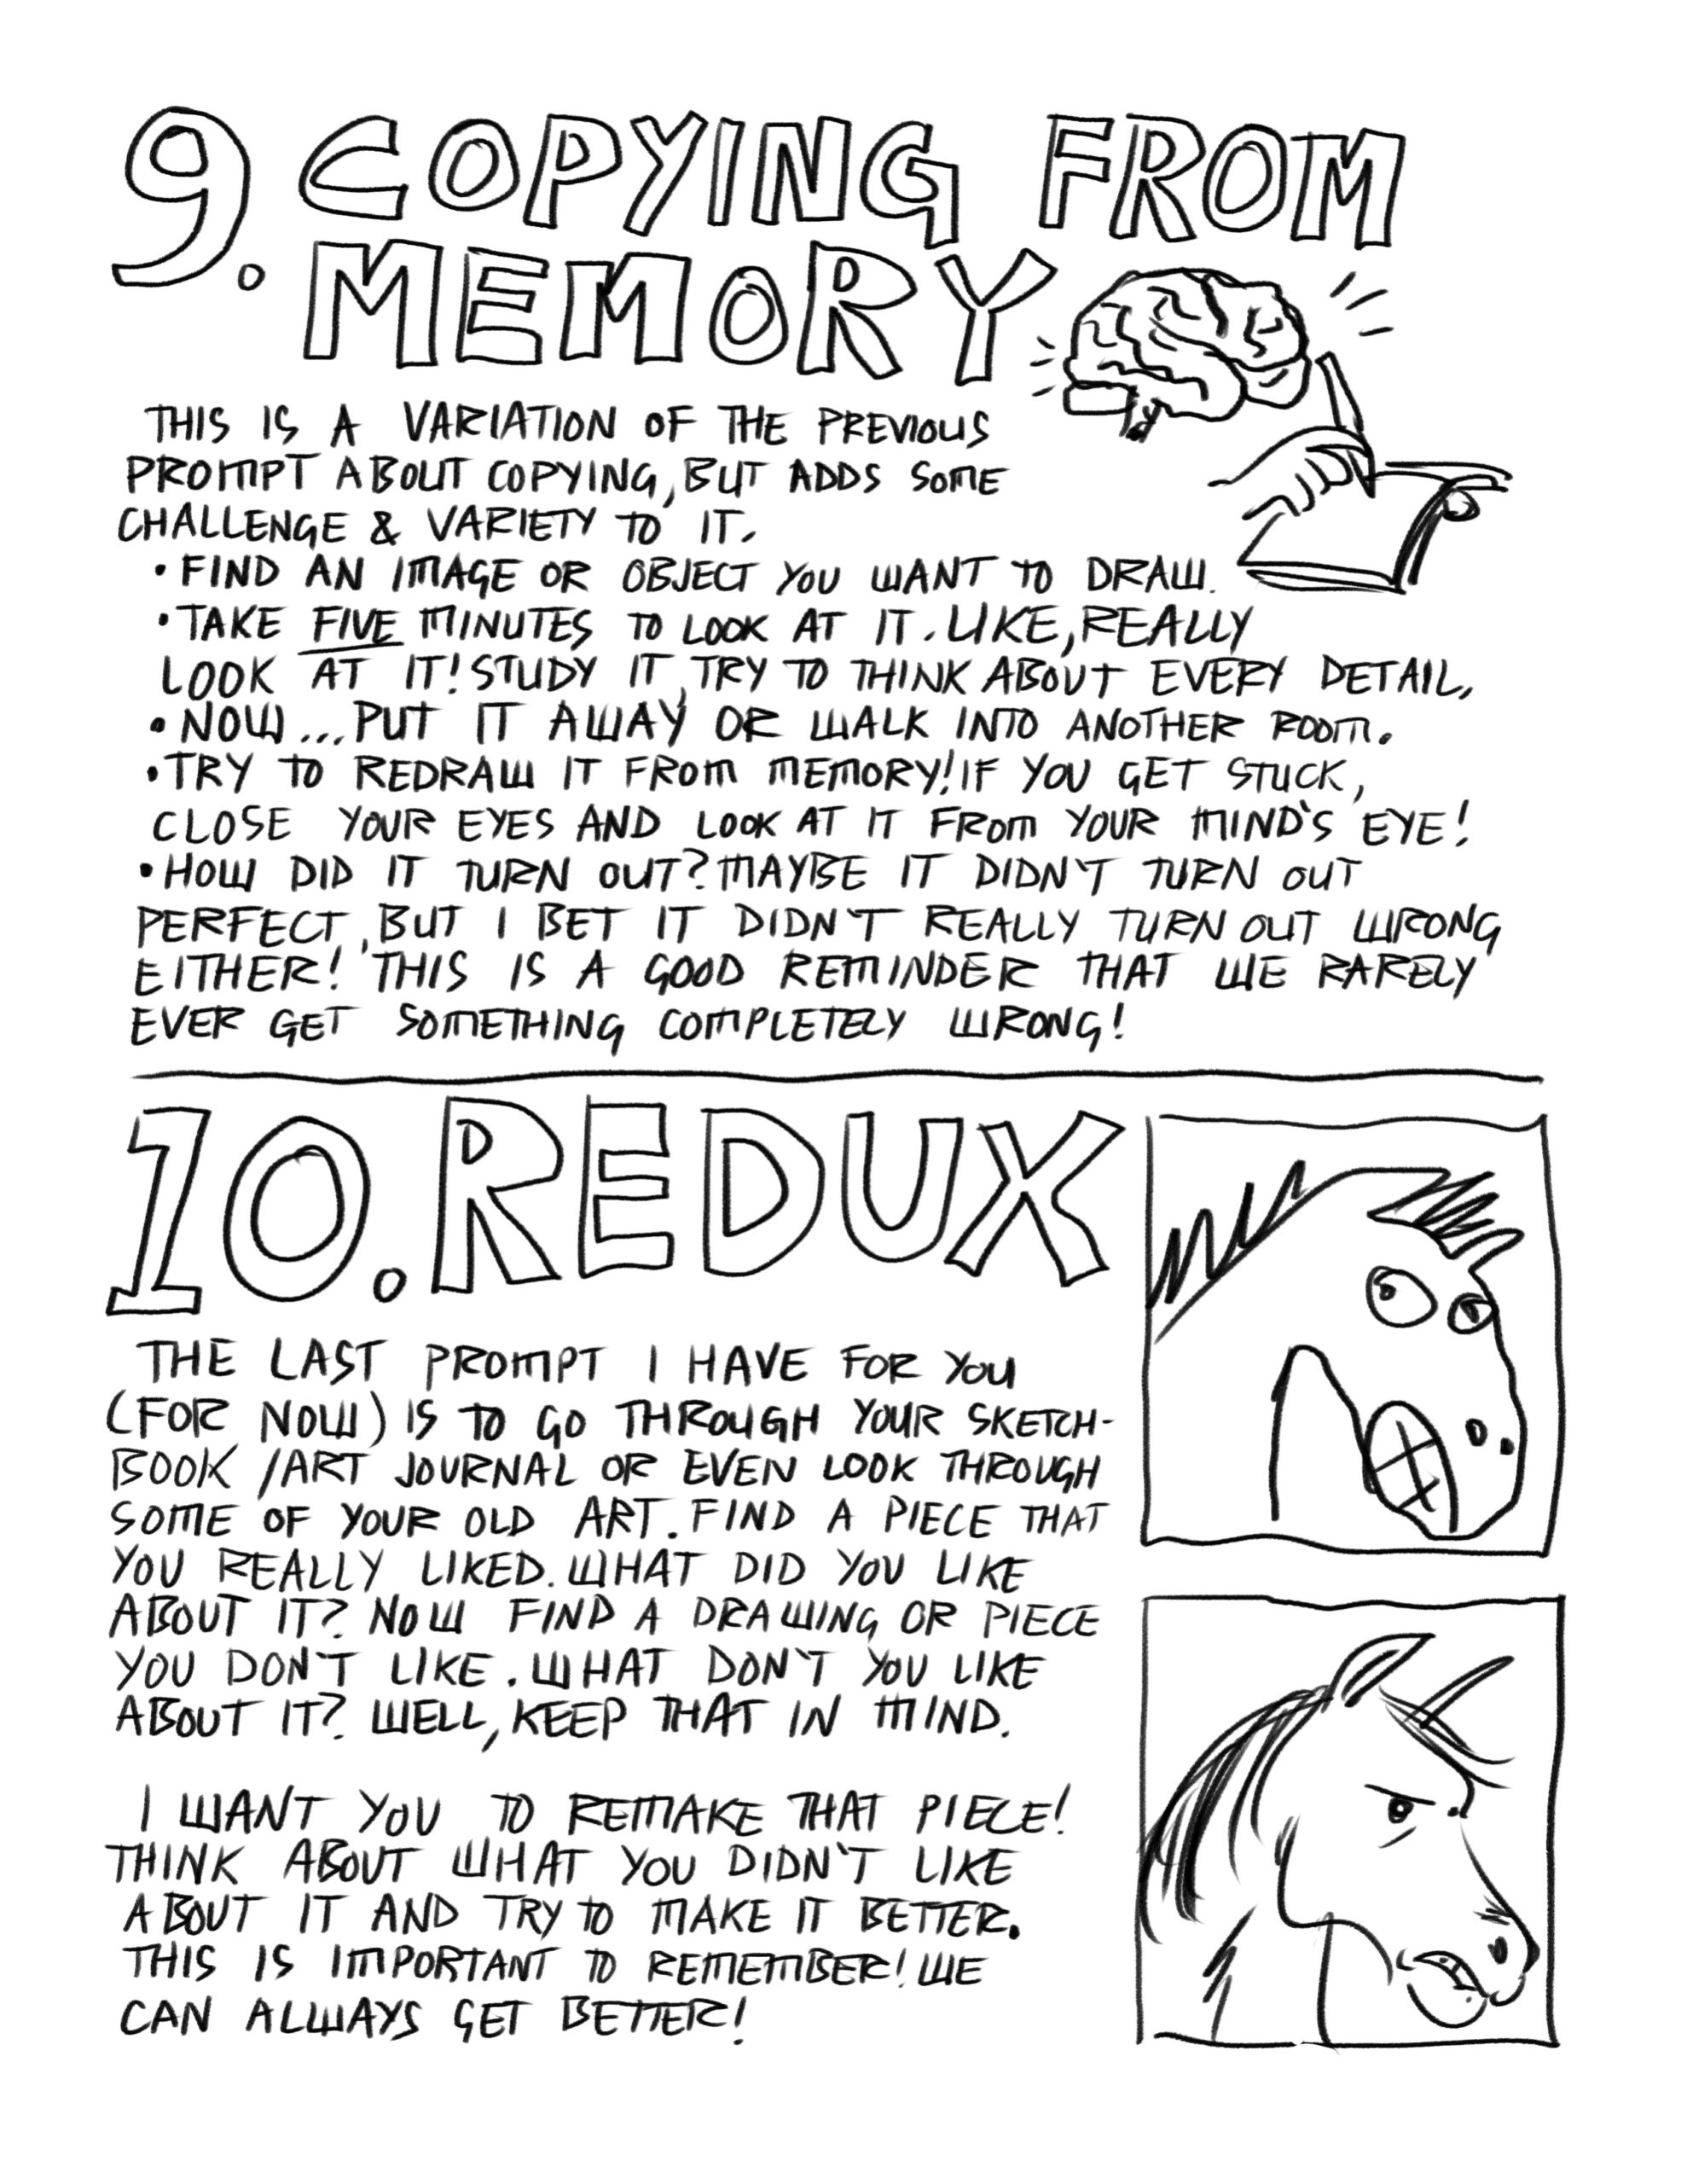 9. COPYING FROM
MEMORY
THIS IS A VARIATION OF THE PREVIOUS
PROMPT ABOUT COPYING, BUT ADDS SOME
CHALLENGE & VARIETY TO IT.
• FIND AN IMAGE OR OBJECT YOU WANT TO DRAW.
• TAKE FIVE MINUTES TO LOOK AT IT. LIKE, REALLY
LOOK AT IT! STUDY IT, TRY TO THINK ABOUT EVERY DETAIL.
• NOW... PUT IT AWAY OR WALK INTO ANOTHER ROOM.
• TRY TO REDRAW IT FROM MEMORY! IF YOU GET STUCK,
CLOSE YOUR EYES AND LOOK AT IT FROM YOUR MIND'S EYE!
• HOW DID IT TURN OUT? MAYBE IT DIDN'T TURN OUT
PERFECT, BUT I BET IT DIDN'T REALLY TURN OUT WRONG
EITHER! THIS IS A GOOD REMINDER THAT WE RARELY
EVER GET SOMETHING COMPLETELY WRONG!
10. REDUX
THE LAST PROMPT I HAVE FOR YOU
(FOR NOW) IS TO GO THROUGH YOUR SKETCH-
BOOK /ART JOURNAL OR EVEN LOOK THROUGH
SOME OF YOUR OLD ART. FIND A PIECE THAT
YOU REALLY LIKED. WHAT DID YOU LIKE
ABOUT IT? NOW FIND A DRAWING OR PIECE
YOU DON'T LIKE. WHAT DON'T YOU LIKE
ABOUT IT? WELL, KEEP THAT IN MIND.
I WANT YOU TO REMAKE THAT PIECE!
THINK ABOUT WHAT YOU DIDN'T LIKE
ABOUT IT AND TRY TO MAKE IT BETTER.
THIS IS IMPORTANT TO REMEMBER! WE
CAN ALWAYS GET BETTER!